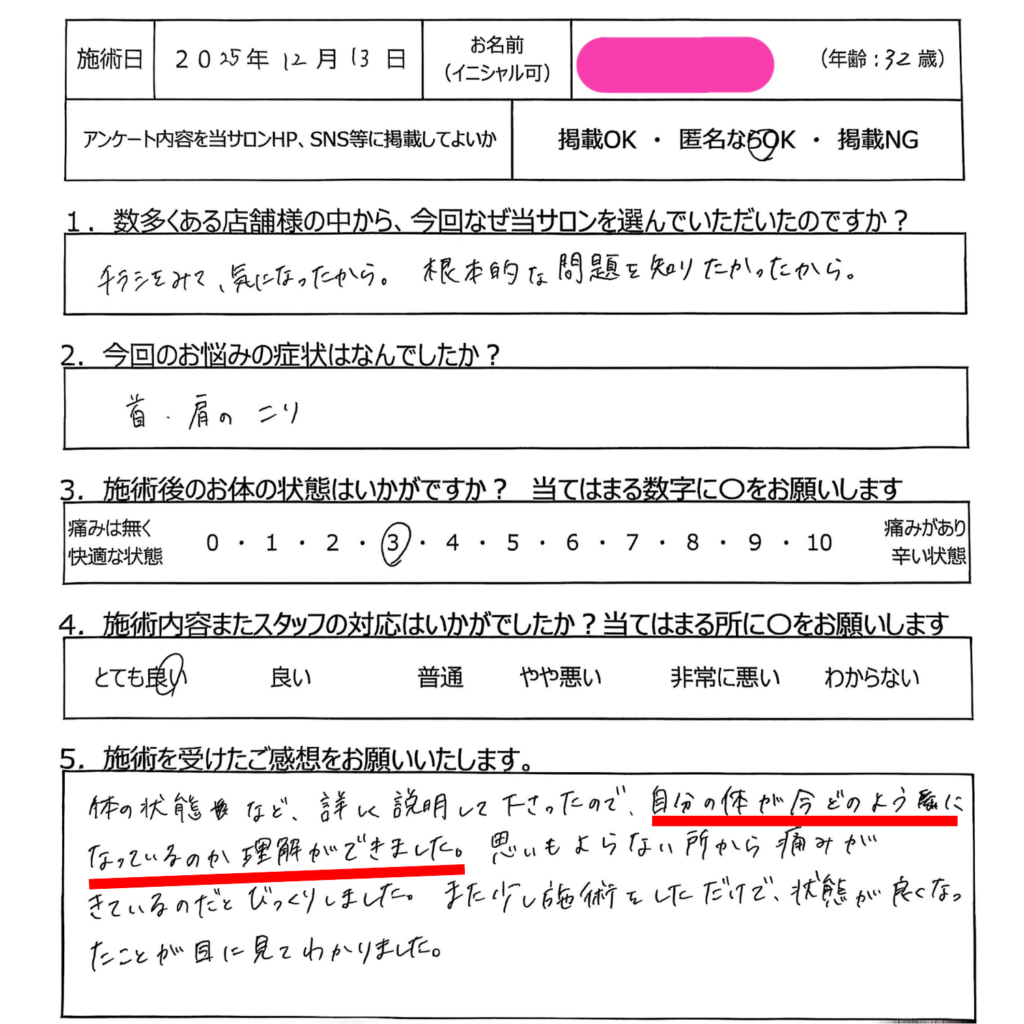 施術日 2025年 12月 13日 お名前 (イニシャル可) (年齢:32歳)
アンケート内容を当サロンHP、SNS等に掲載してよいか 掲載OK ・ 匿名ならOK ・ 掲載NG
1. 数多くある店舗様の中から、今回なぜ当サロンを選んでいただいたのですか?
チラシをみて、気になったから。 根本的な問題を知りたかったから。
2. 今回のお悩みの症状はなんでしたか?
首・肩の こり
3. 施術後のお体の状態はいかがですか? 当てはまる数字に〇をお願いします
痛みは無く 快適な状態 0 ・ 1 ・ 2 ・ 3 ・ 4 ・ 5 ・ 6 ・ 7 ・ 8 ・ 9 ・ 10 痛みがあり 辛い状態
4. 施術内容またスタッフの対応はいかがでしたか?当てはまる所に〇をお願いします
とても良い 良い 普通 やや悪い 非常に悪い わからない
5. 施術を受けたご感想をお願いいたします。
体の状態 など、詳しく説明して下さったので、自分の体が今どのように
なっているのか理解ができました。思いもよらない所から痛みが
きているのだとびっくりしました。また少し施術をしただけで、状態が良くなっ
たことが目に見てわかりました。